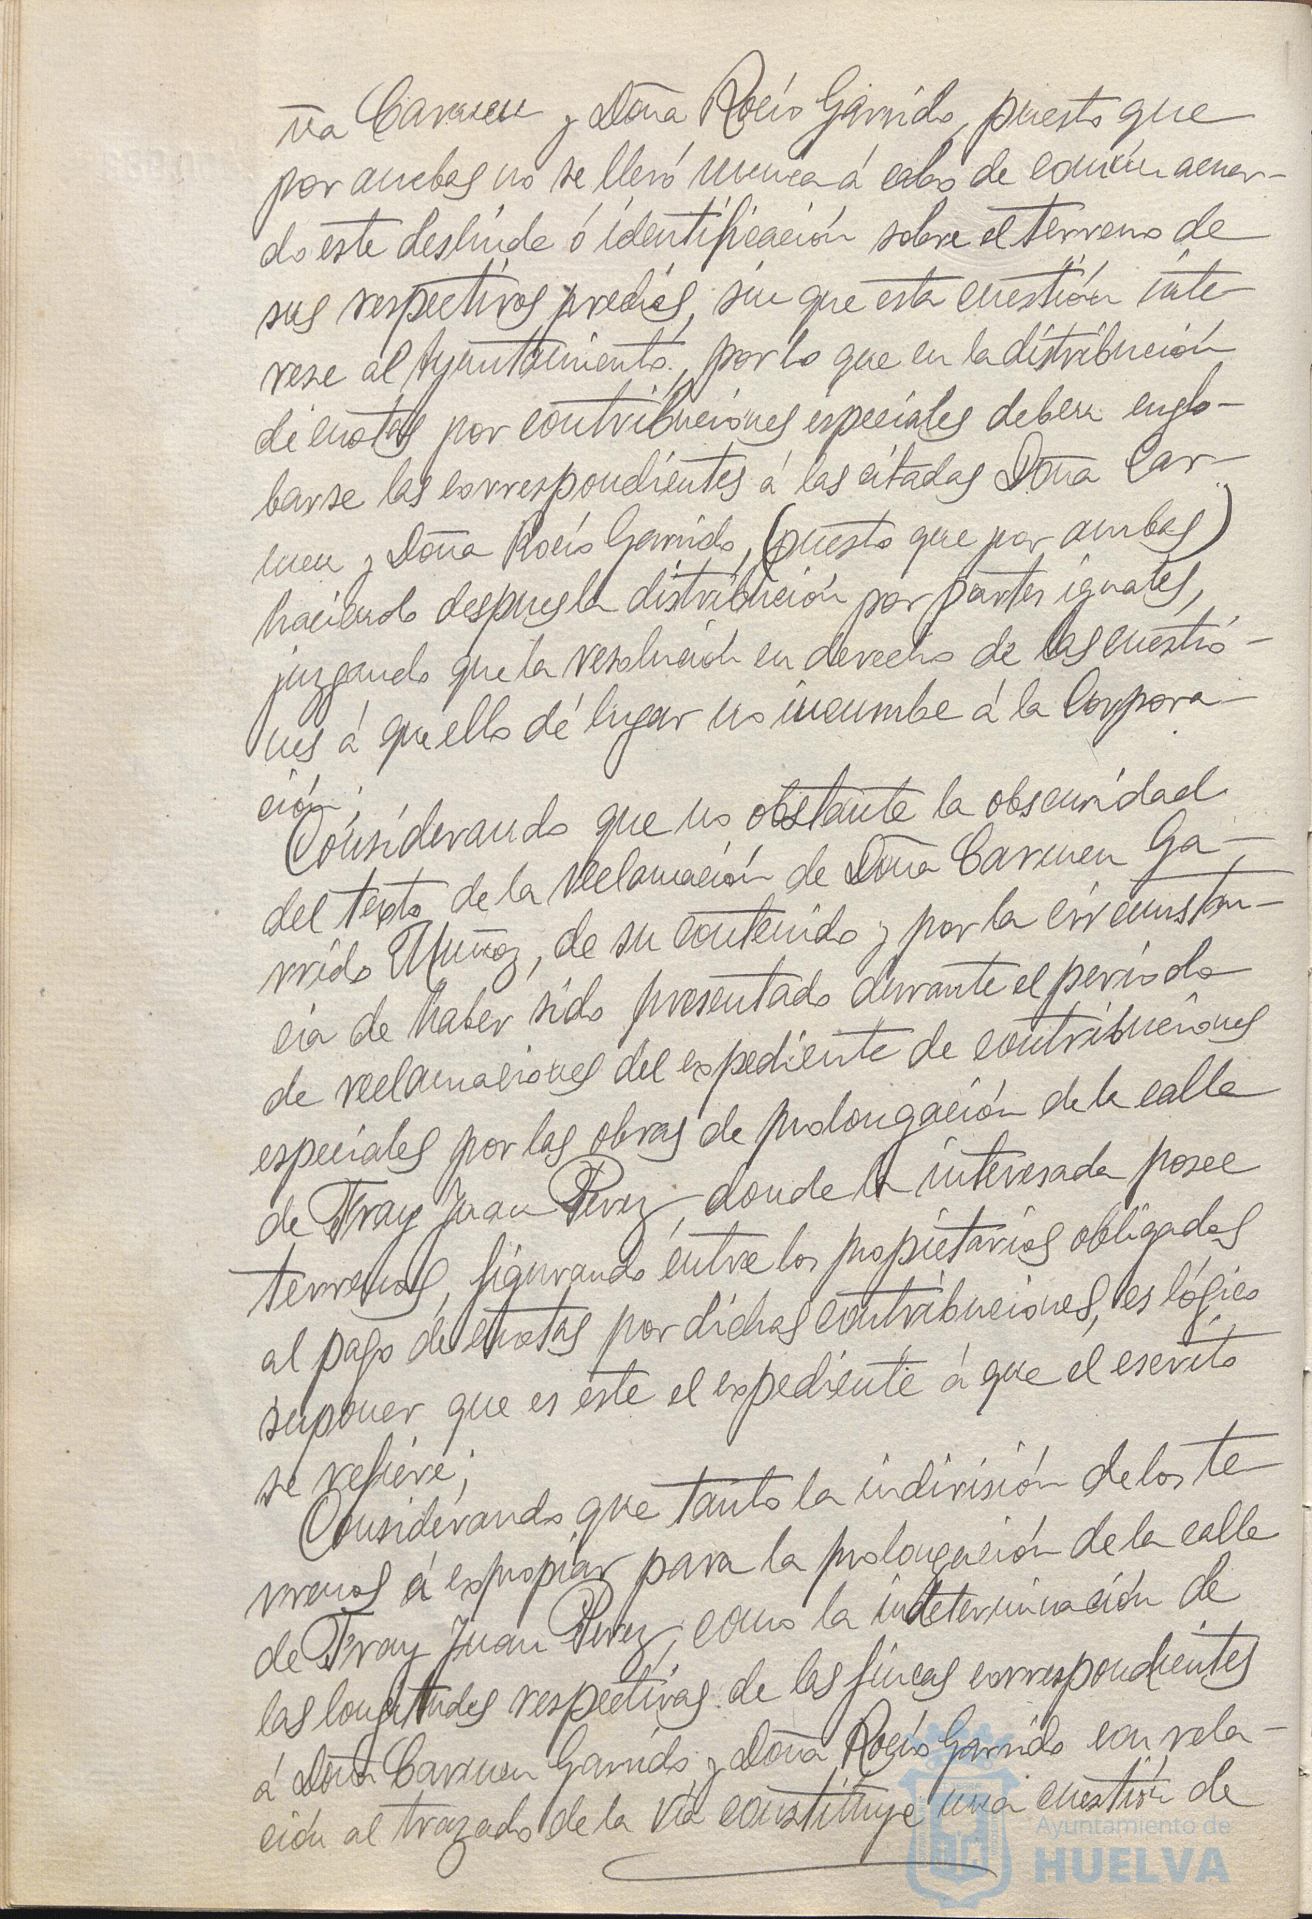 ña Carmen y Doña Rocío Garrido, puesto que
por ambas no se llevó nunca á cabo de comun acuer-
do este deslinde ó identificación sobre el terreno de
sus respectivos predios, sin que esta cuestión inte-
rese al Ayuntamiento, por lo que en la distribución
de cuotas por contribuciones especiales deben englo-
barse las correspondientes á las citadas Doña Car-
men y Doña Rocío Garrido, (puesto que por ambas)
haciendo despues la distribución por partes iguales,
juzgando que la resolución en derecho de las cuestio-
nes á que ello dé lugar no incumbe á la Corpora-
ción;
Considerando que no obstante la obscuridad
del texto de la reclamación de Doña Carmen Ga-
rrido Muñoz, de su contenido y por la circunstan-
cia de haber sido presentado durante el periodo
de reclamaciones del expediente de contribuciones
especiales por las obras de prolongación de la calle
de Fray Juan Perez, donde la interesada posee
terrenos, figurando entre los propietarios obligados
al pago de cuotas por dichas contribuciones, es lógico
suponer que es este el expediente á que el escrito
se refiere;
Considerando que tanto la indivisión de los te-
rrenos á expropiar para la prolongación de la calle
de Fray Juan Perez, como la indeterminación de
las longitudes respectivas de las fincas correspondientes
á Doña Carmen Garrido y Doña Rocío Garrido con rela-
ción al trazado de la vía constituye una cuestión de
Ayuntamiento de
HUELVA